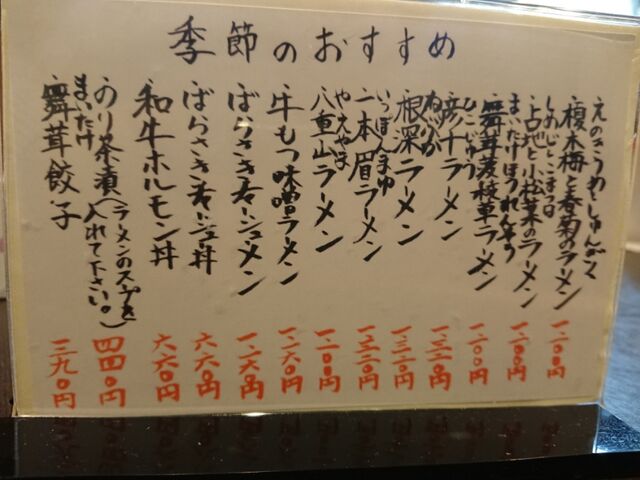 季節のおすすめ
えのきうめとしゅんぎく
榎木梅と春菊のラーメン 一二〇〇円
しめじとこまつな
占地と小松菜のラーメン 一二〇〇円
まいたけほうれんそう
舞茸菠薐草ラーメン 一二〇〇円
ひこじゅう
彦十ラーメン
ねぶか
根深ラーメン
いっぽんまゆ
一本眉ラーメン
やえやま
八重山ラーメン 一二〇〇円
牛もつ味噌ラーメン 一二六〇円
ばらさきチャーシューメン
ばらさきチャーシュー丼 六六〇円
和牛ホルモン丼 六六〇円
のり茶漬(ラーメンのスープを
入れて下さい。) 四四〇円
まいたけ
舞茸餃子 三九〇円